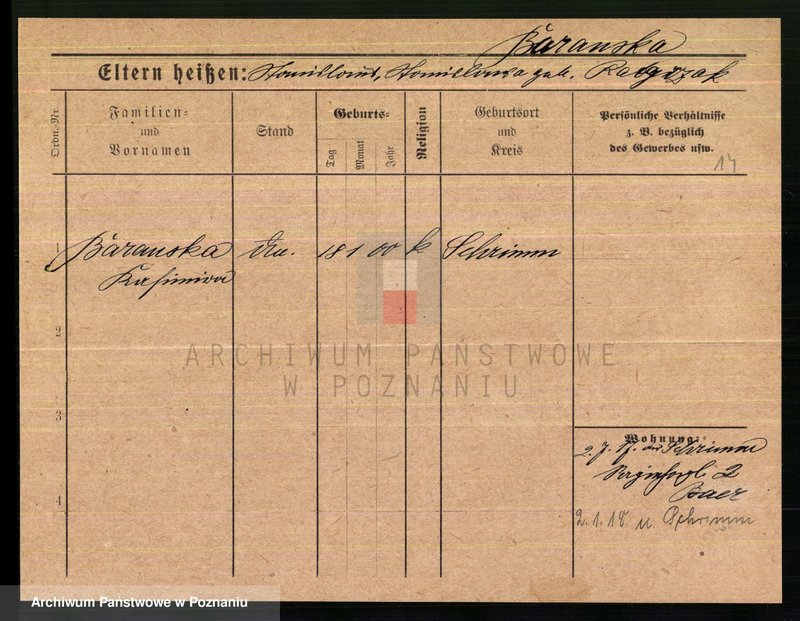 Baranska
Eltern heißen: Stanislaus, Stanislawa geb. Ratajczak
Ordn.-Nr.
Familien- und Vornamen
Stand
Geburts-
Tag
Monat
Jahr
Religion
Geburtsort und Kreis
Persönliche Verhältnisse
z. B. bezüglich
des Gewerbes usw.
14
1 Baranska
18 1 00 k Schrimm
Kasimira
2
ARCHIWUM PAŃSTWOWE
W POZNANIU
3
Wohnung:
2. 7. 17. Schrimm
2
Baer
4
2.1.18. u. Schrimm
Archiwum Państwowe w Poznaniu